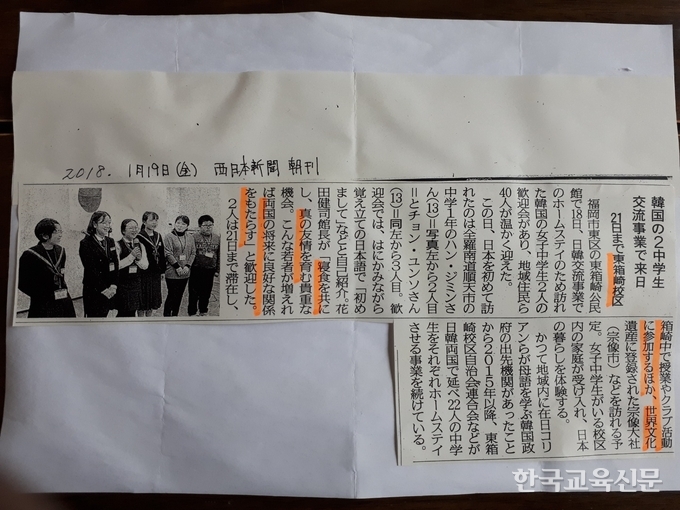 2018. 1月19日(金) 西日本新聞 朝刊
韓国の2中学生
交流事業で来日
21日まで東箱崎校区
福岡市東区の東箱崎公民
館で18日、日韓交流事業で
のホームステイのため訪れ
た韓国の女子中学生2人の
歓迎会があり、地域住民ら
40人が温かく迎えた。
この日、日本を初めて訪
れたのは全羅南道順天市の
中学1年のハン・ジミンさ
ん(13)=写真左から2人目
=とチョン・ユンソさん
(13)=同左から3人目。歓
迎会では、はにかみながら
覚え立ての日本語で「初め
まして」などと自己紹介。花
田健司館長が「寝食を共に
し、真の友情を育む貴重な
機会。こんな若者が増えれ
ば両国の将来に良好な関係
をもたらす」と歓迎した。
2人は21日まで滞在し、
箱崎中で授業やクラブ活動
に参加するほか、世界文化
遺産に登録された宗像大社
(宗像市)などを訪れる予
定。女子中学生がいる校区
内の家庭が受け入れ、日本
の暮らしを体験する。
かつて地域内に在日コリ
アンらが母語を学ぶ韓国政
府の出先機関があったこと
から2015年以降、東箱
崎校区自治会連合会などが
日韓両国で延べ22人の中学
生をそれぞれホームステイ
させる事業を続けている。
한국교육신문